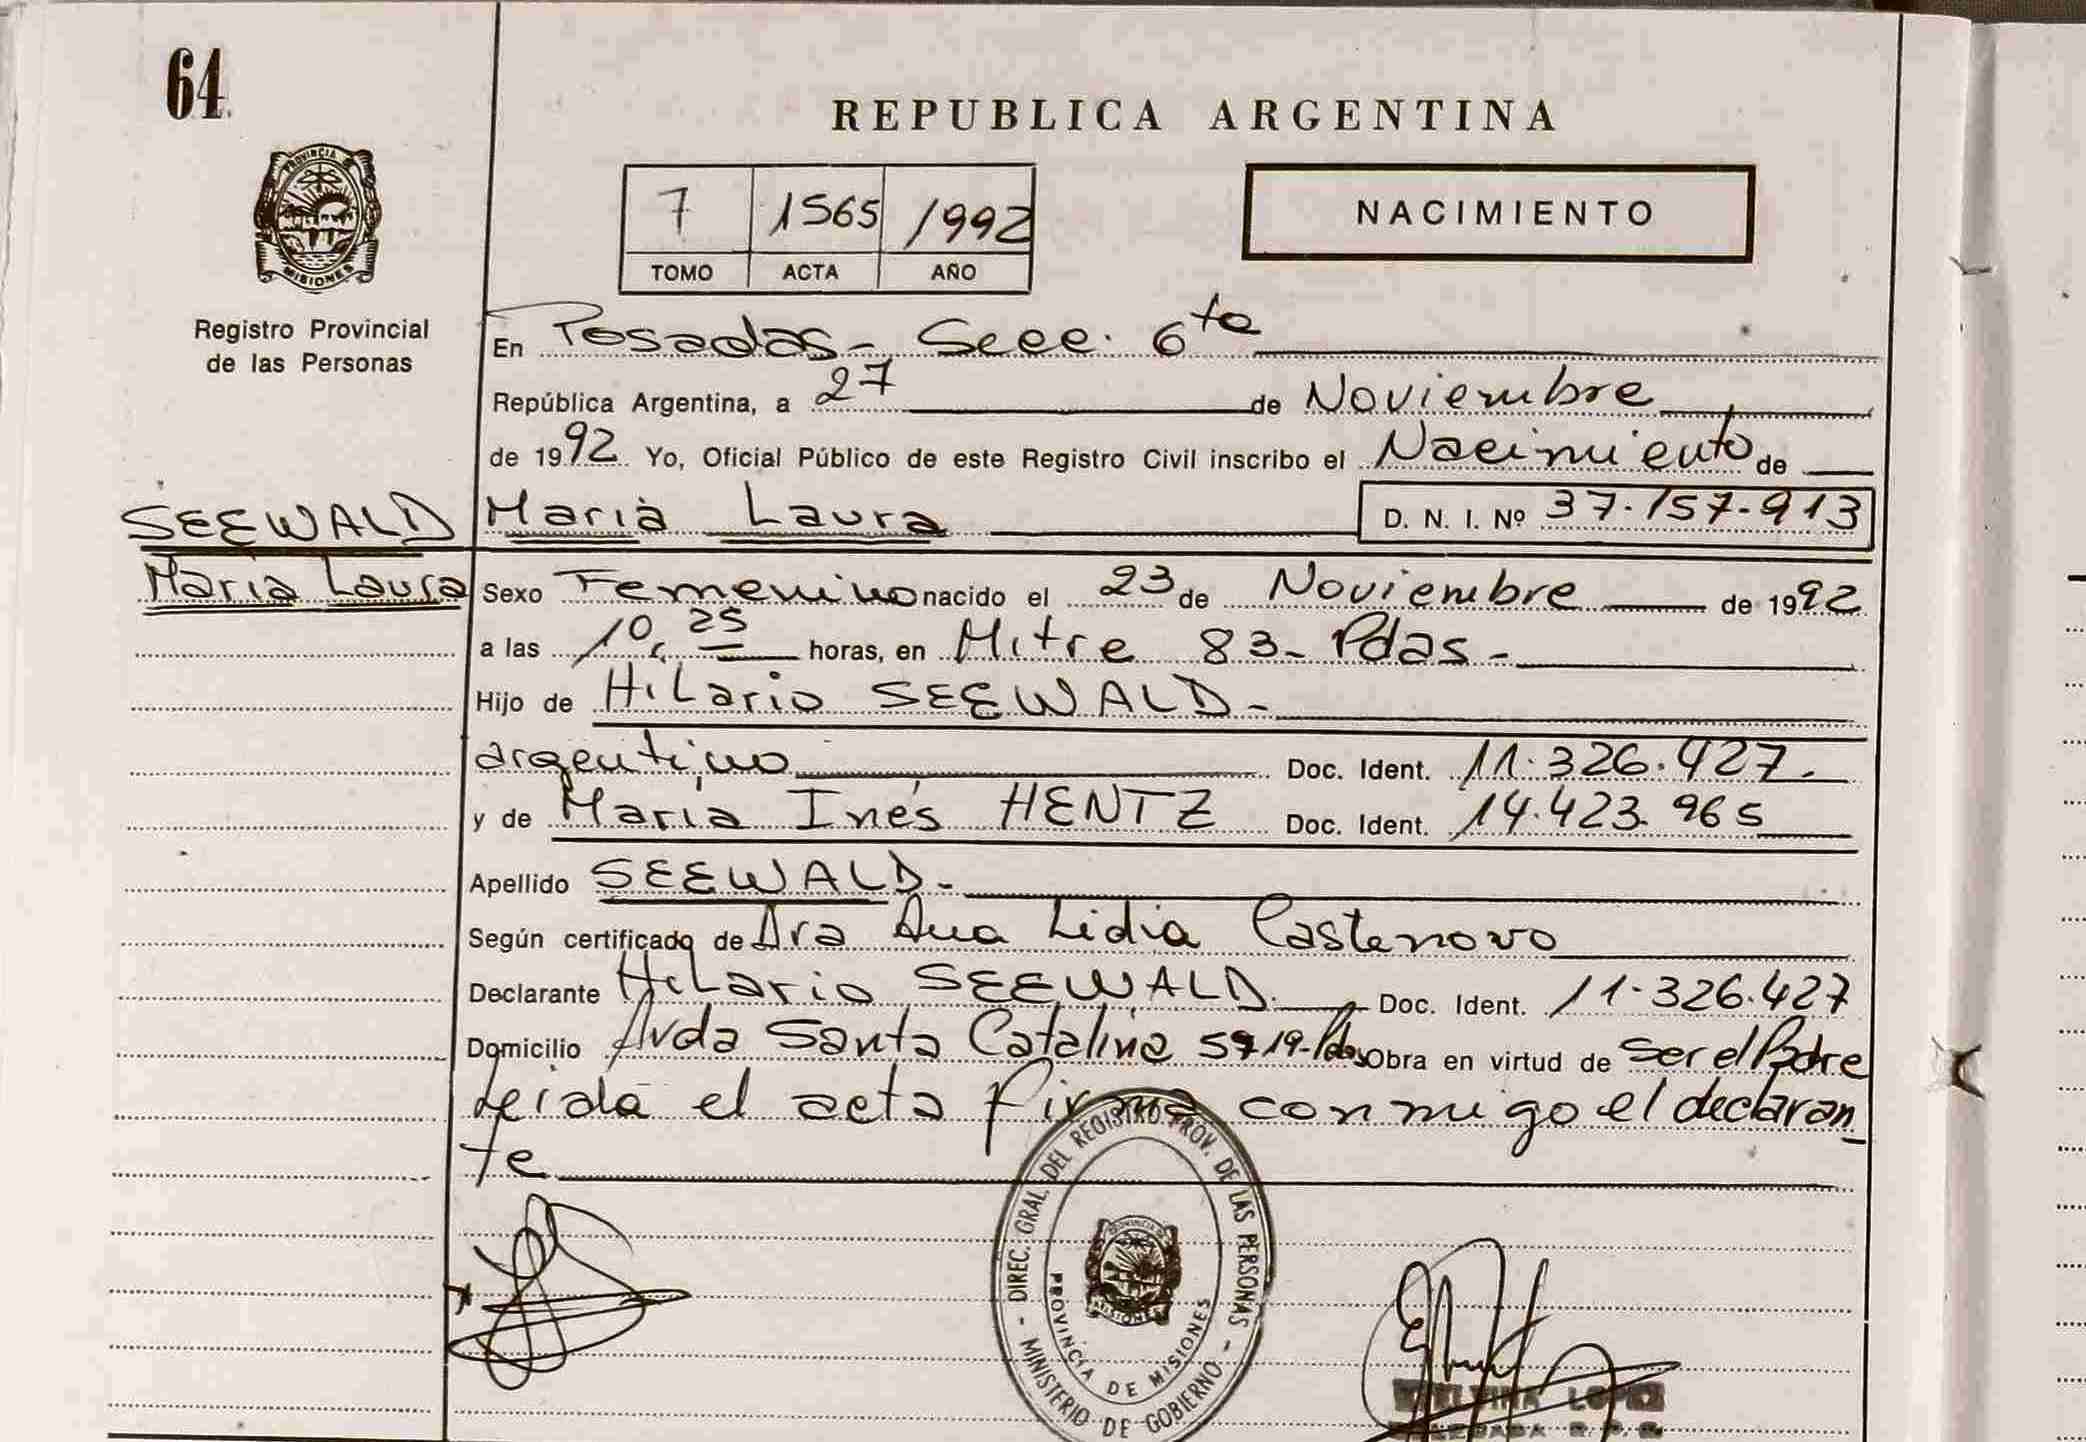 64
REPUBLICA ARGENTINA
PROVINCIA DE
MISIONES
7 1565 1992
TOMO ACTA AÑO
NACIMIENTO
Registro Provincial
de las Personas
En Posadas-, Secc. 6ta
República Argentina, a 27 de Noviembre
de 1992 Yo, Oficial Público de este Registro Civil inscribo el Nacimiento de
SEEWALD Maria Laura D. N. I. Nº 37.157.913
Maria Laura Sexo Femenino nacido el 23 de Noviembre de 1992
a las 10,25 horas, en Mitre 83- Pdas-
Hijo de Hilario SEEWALD-
argentino Doc. Ident. 11.326.427.
y de Maria Inés HENTZ Doc. Ident. 14.423.965
Apellido SEEWALD-
Según certificado de Dra Ana Lidia Castenovo
Declarante Hilario SEEWALD. Doc. Ident. 11.326.427
Domicilio Avda Santa Catalina 5919-Pdas Obra en virtud de ser el Padre
Leida el acta firma conmigo el declaran
te
DIREC. GRAL. DEL REGISTRO PROV. DE LAS PERSONAS - MINISTERIO DE GOBIERNO -
PROVINCIA DE MISIONES
LOPEZ